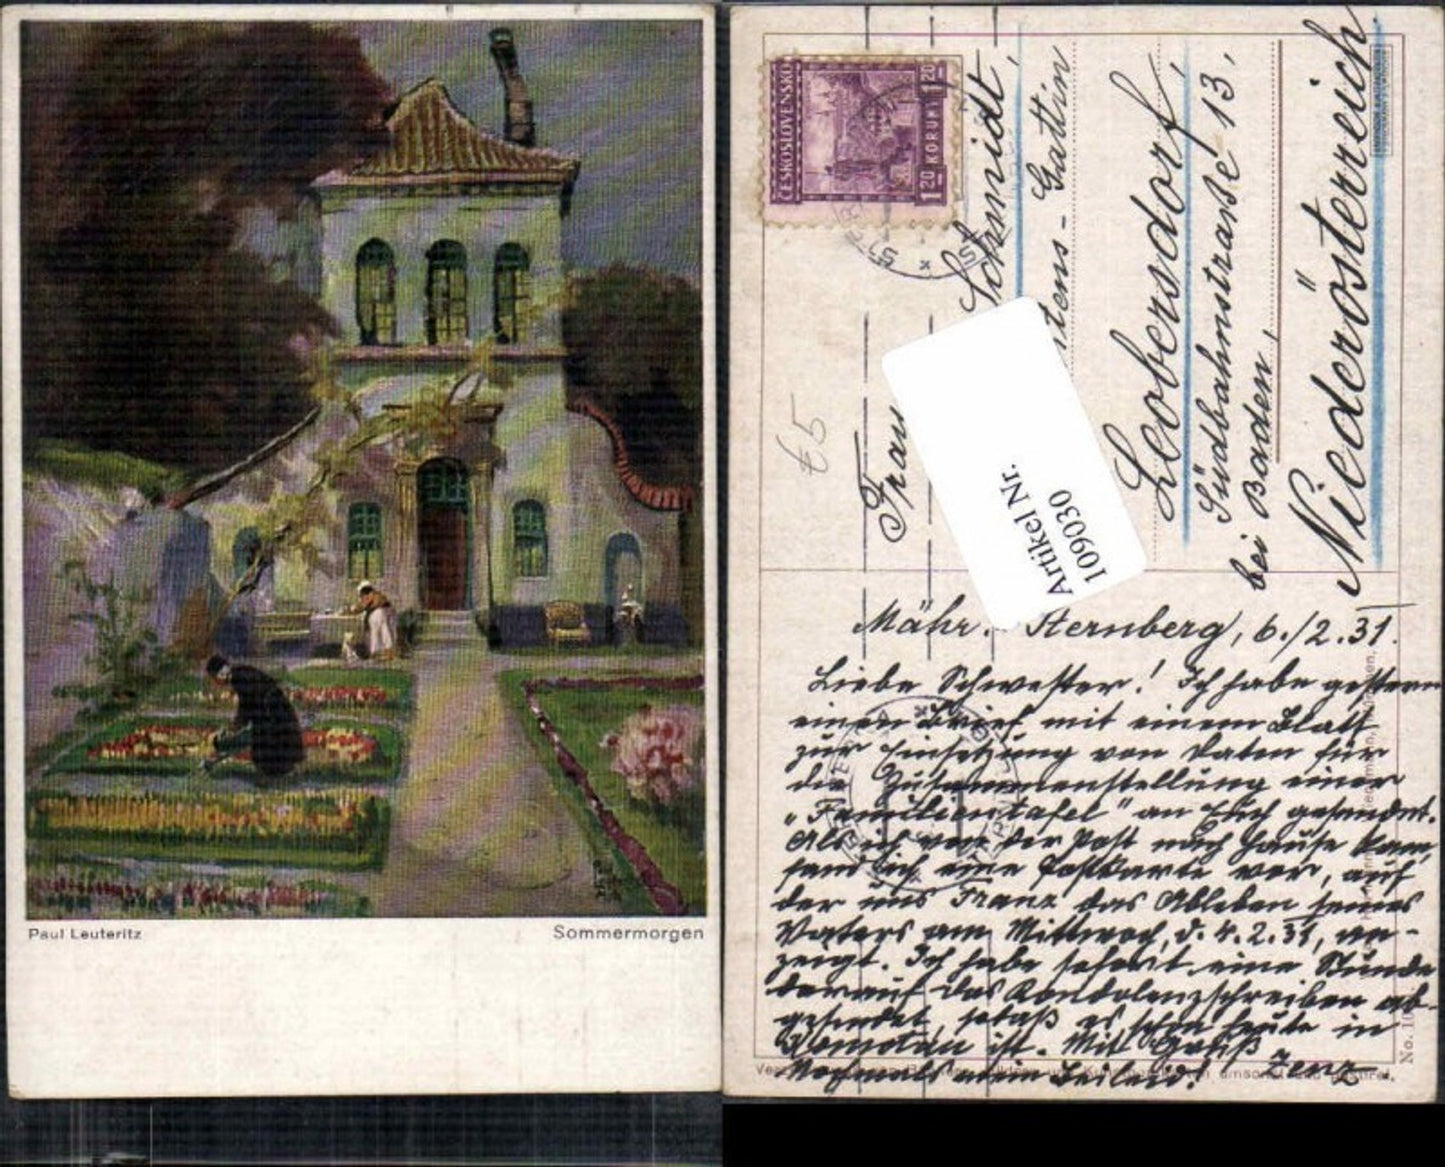 Paul Leuteritz
Sommermorgen
ČESKOSLOVENSKO
1.20 KORUN 1.20
€5
Frau Schmidt,
Gattin
Leobersdorf,
Südbahnstrasse 13,
bei Baden,
Niederösterreich
Artikel Nr.
109030
Mähr. Sternberg, 6./2.31.
Liebe Schwester! Ich habe gestern
einen Brief mit einem Blatt
zur Einsetzung von Daten für
die Zusammenstellung einer
„Familientafel" an Euch gesendet.
Als ich von der Post nach Hause kam,
fand ich eine Postkarte vor, auf
der uns Franz das Ableben seines
Vaters am Mittwoch, d. 4.2.31, an-
zeigt. Ich habe sofort eine Stunde
darauf das Kondolenzschreiben ab-
gesendet, sodaß es schon heute in
ist. Mit Gruß
Nochmals mein Beileid! Zenz
No.